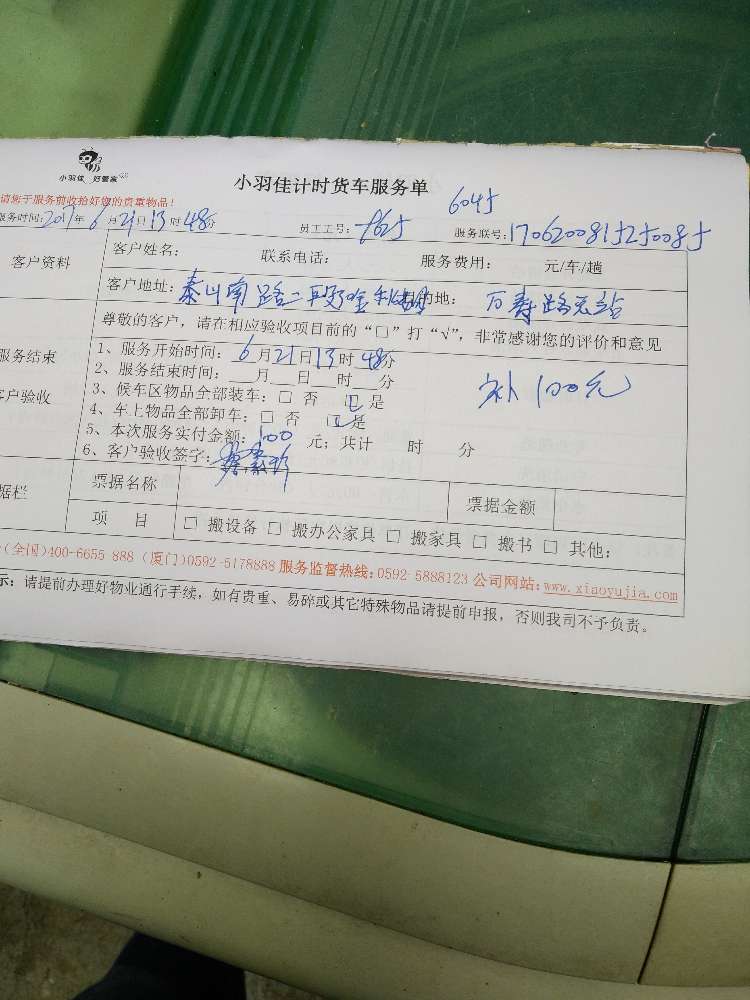 小羽佳 好管家
小羽佳计时货车服务单
请您于服务前收拾好您的贵重物品！
6045
服务时间:2017年6月21日13时48分 员工工号: 服务联号:1706200815250085
客户资料
客户姓名: 联系电话: 服务费用: 元/车/趟
客户地址: 泰山南路二 的地: 万寿路
服务结束
客户验收
尊敬的客户，请在相应验收项目前的“□”打“√”，非常感谢您的评价和意见
1、服务开始时间: 6月21日13时48分
2、服务结束时间: ___月___日___时___分
补100元
3、候车区物品全部装车: □ 否 ☑ 是
4、车上物品全部卸车: □ 否 ☑ 是
5、本次服务实付金额: 100 元; 共计 时 分
6、客户验收签字:
据栏
票据名称 票据金额
项 目 □ 搬设备 □ 搬办公家具 □ 搬家具 □ 搬书 □ 其他:
(全国)400-6655 888 (厦门)0592-5178888 服务监督热线:0592-5888123 公司网站: www.xiaoyujia.com
示: 请提前办理好物业通行手续，如有贵重、易碎或其它特殊物品请提前申报，否则我司不予负责。